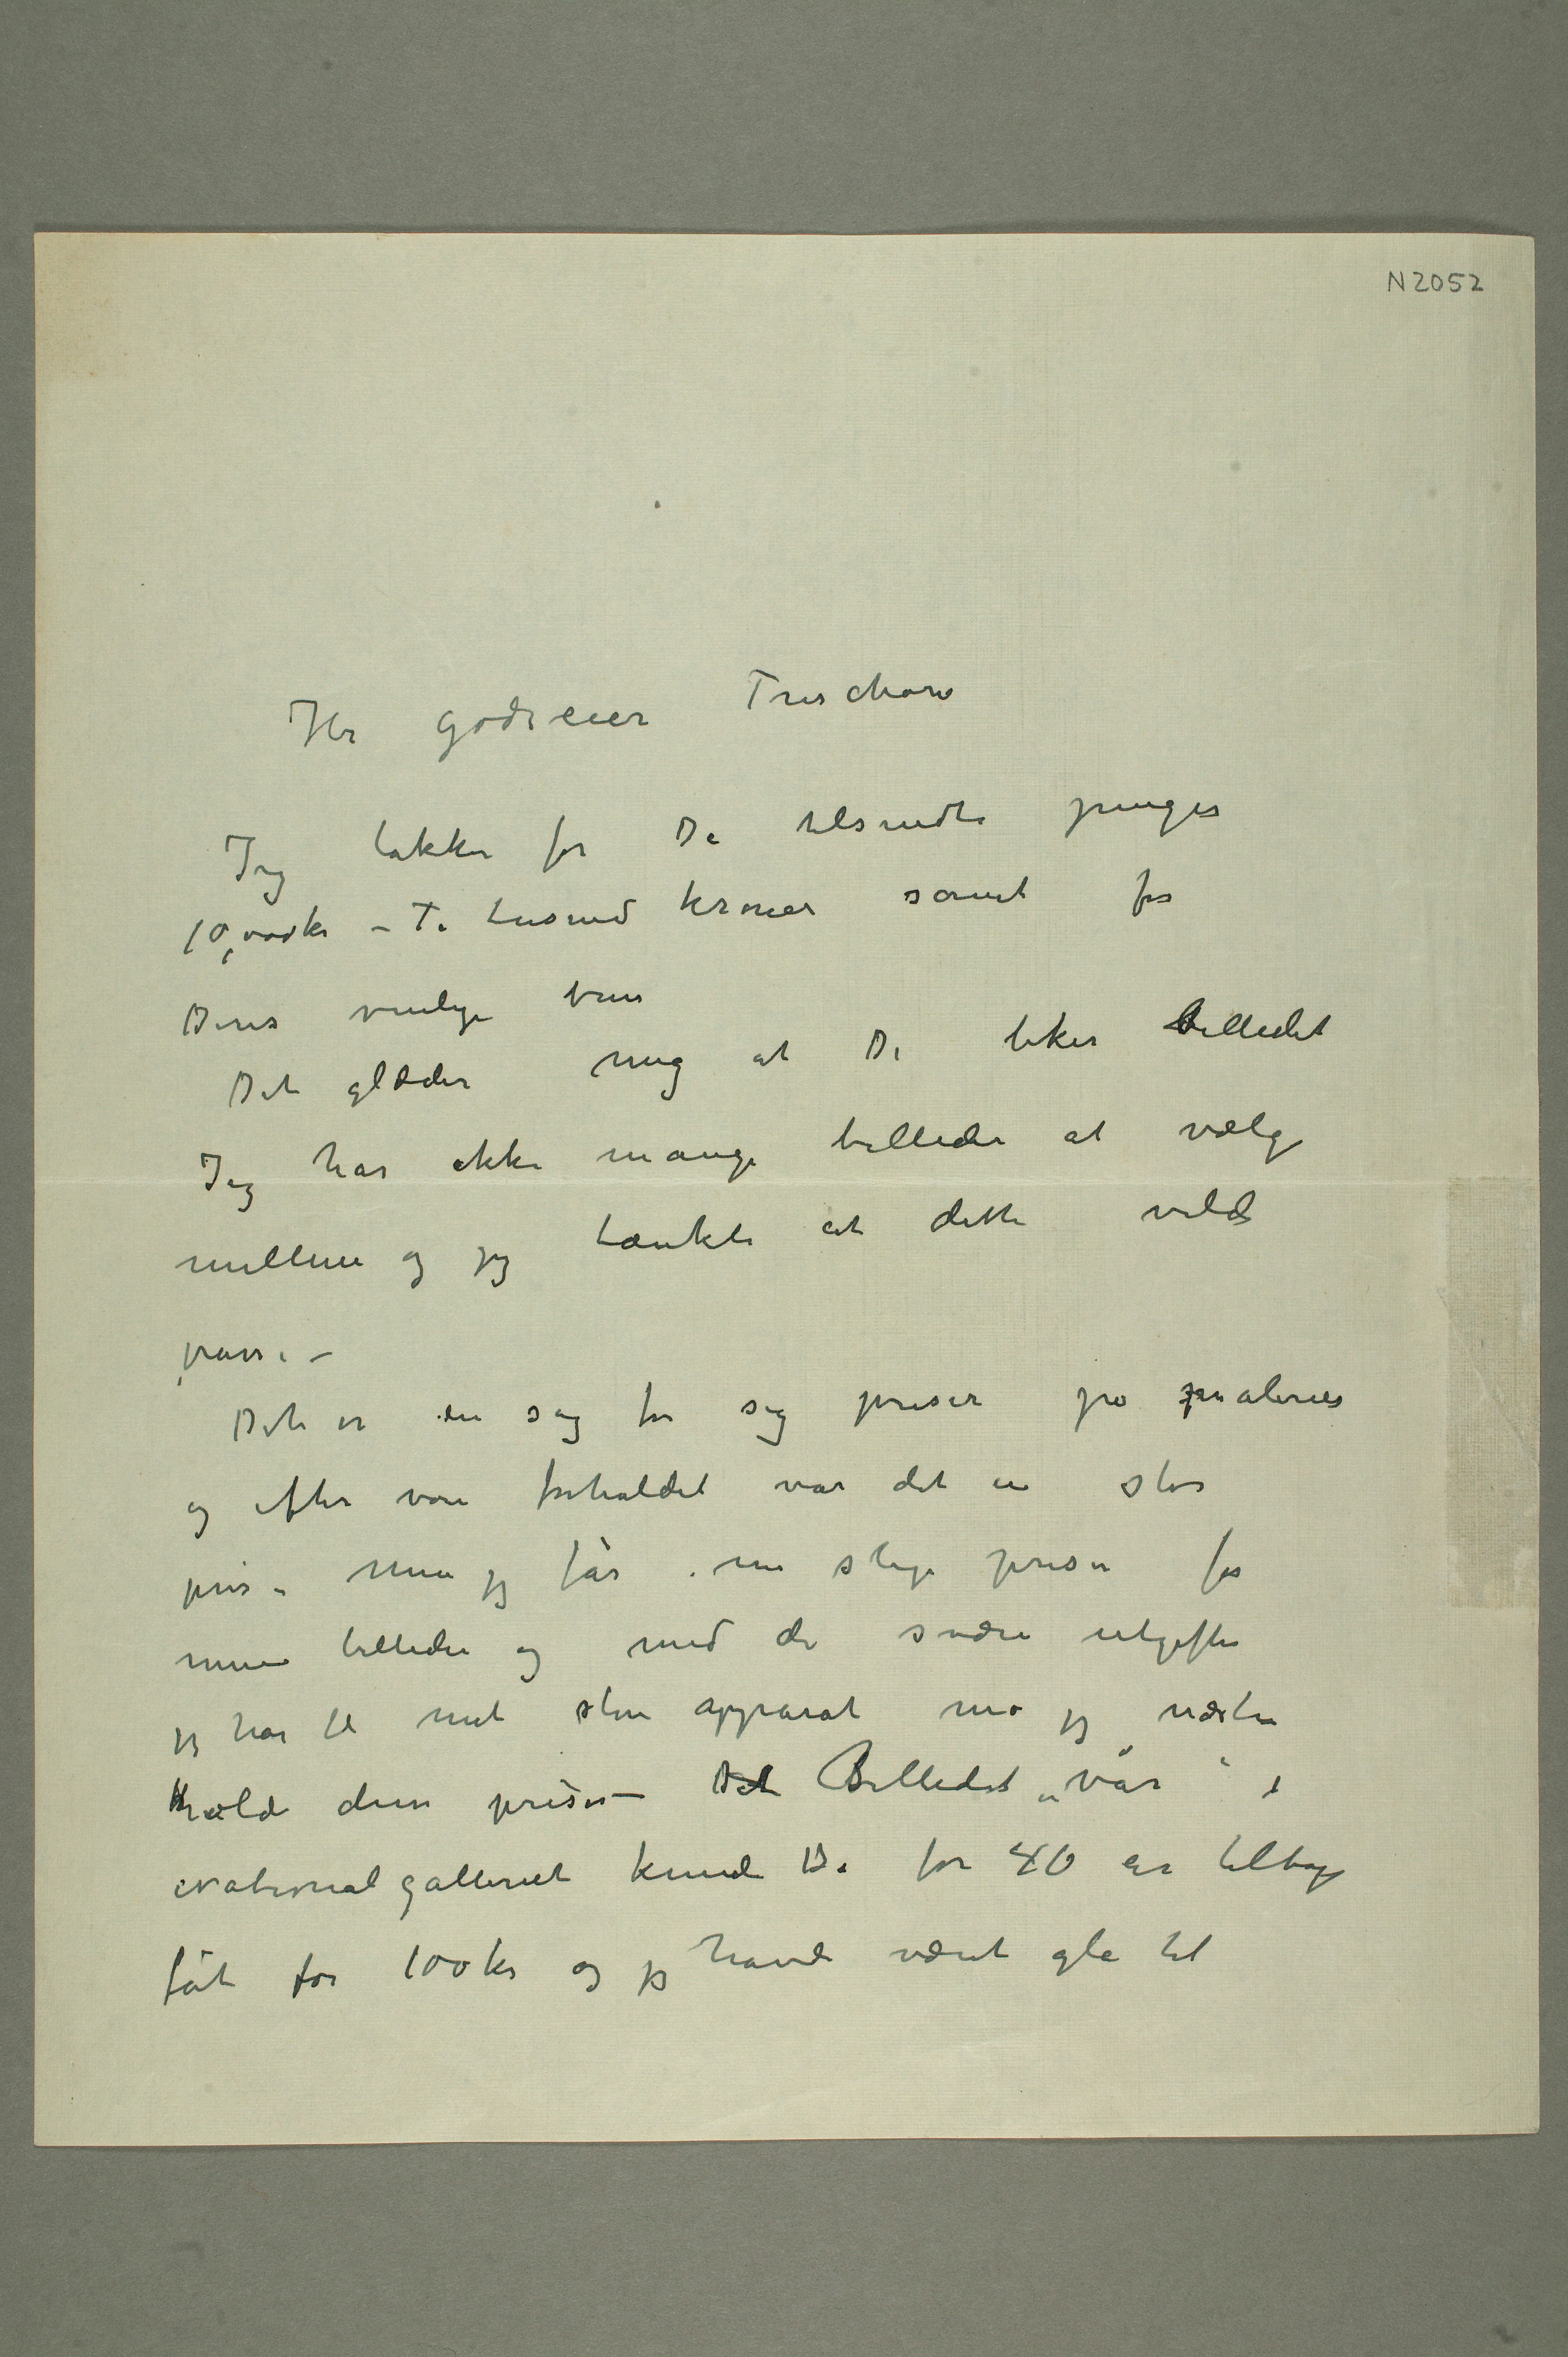 N 2052
Hr godseier Treschow
Jeg takker for De tilsendte penger
10,000kr – Ti tusend kroner samt for
Deres venlige brev
Det glæder mig at De liker billedet
Jeg har ikke mange billeder at vælge
mellem og jeg tænkte at dette vilde
passe –
Det er en sag for sig priser på malerier
og efter vore forholdet var det en stor
pris – Men jeg får nu slige priser for
mine billeder og med de svære utgifter
jeg har til mit store apparat må jeg næsten
holde disse priser – Det Billedet „vår“ i
Nationalgalleriet kunde De for 40 år tilbage
fåt for 100kr og jeg havde været gla til